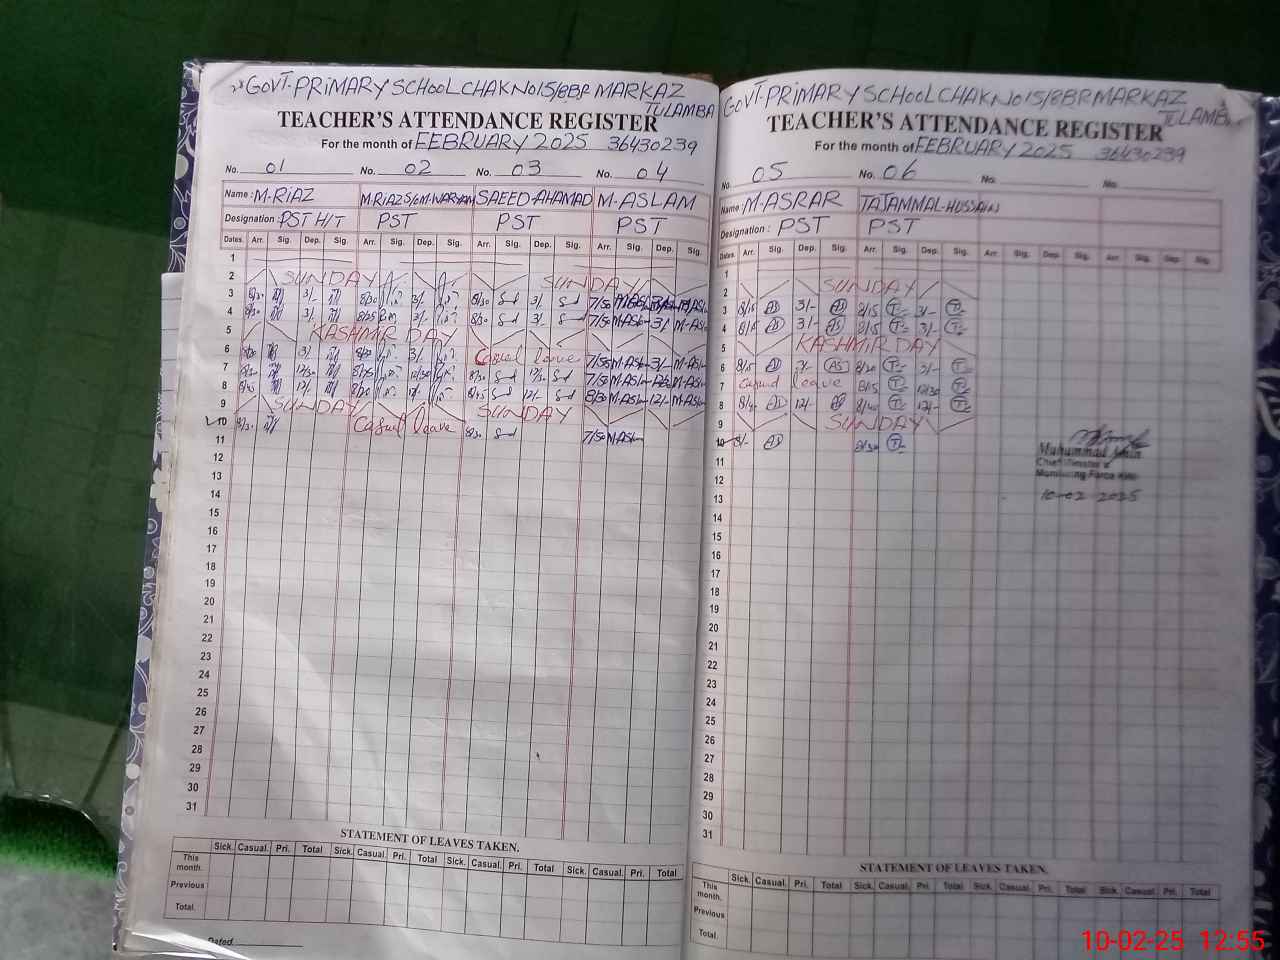 GOVT. PRIMARY SCHOOL CHAK No 15/8BR MARKAZ
TULAMBA
TEACHER'S ATTENDANCE REGISTER
For the month of FEBRUARY 2025 36430239
No. 01 No. 02 No. 03 No. 04
Name: M.RIAZ M.RIAZ S/o M.WARYAM SAEED AHAMAD M.ASLAM
Designation: PST H/T PST PST PST
Dates. Arr. Sig. Dep. Sig. Arr. Sig. Dep. Sig. Arr. Sig. Dep. Sig. Arr. Sig. Dep. Sig.
1
2 SUNDAY SUNDAY
3 8/30 3/- 8/30 3/- 8/30 3/- 7/50
4 3/- 3/- 8/30 3/- 7/50 M-ASL 3/- M-ASL
5 KASHMIR DAY
6 3/- 3/- Casual leave 7/55 M-ASL 3/- M-ASL
7 12/30 12/30 8/30 7/50 M-ASL M-ASL
8 12/- 12/- 8/30 M-ASL 12/- M-ASL
9 SUNDAY SUNDAY
10 8/30 Casual leave 8/30 7/50 M-ASL
11
12
13
14
15
16
17
18
19
20
21
22
23
24
25
26
27
28
29
30
31
STATEMENT OF LEAVES TAKEN.
Sick. Casual. Pri. Total Sick. Casual. Pri. Total Sick. Casual. Pri. Total Sick. Casual. Pri. Total
This month.
Previous
Total.
Dated
GOVT. PRIMARY SCHOOL CHAK No 15/8BR MARKAZ
TULAMBA
TEACHER'S ATTENDANCE REGISTER
For the month of FEBRUARY 2025 36430239
No. 05 No. 06 No. No.
Name M.ASRAR TAJAMMAL-HUSSAIN
Designation: PST PST
Dates. Arr. Sig. Dep. Sig. Arr. Sig. Dep. Sig. Arr. Sig. Dep. Sig. Arr. Sig. Dep. Sig.
1
2 SUNDAY
3 8/15 3/- 8/15 3/-
4 8/15 3/- 8/15 3/-
5 KASHMIR DAY
6 8/15 3/- 8/30 3/-
7 Casual leave 8/15 12/30
8 12/- 12/-
9 SUNDAY
10 8/- 8/30
11
12
13
14
15
16
17
18
19
20
21
22
23
24
25
26
27
28
29
30
31
Muhammad Amin
Chief Minister's
Monitoring Force
10-02-2025
STATEMENT OF LEAVES TAKEN.
Sick. Casual. Pri. Total Sick. Casual. Pri. Total Sick. Casual. Pri. Total Sick. Casual. Pri. Total
This month.
Previous
Total.
10-02-25 12:55